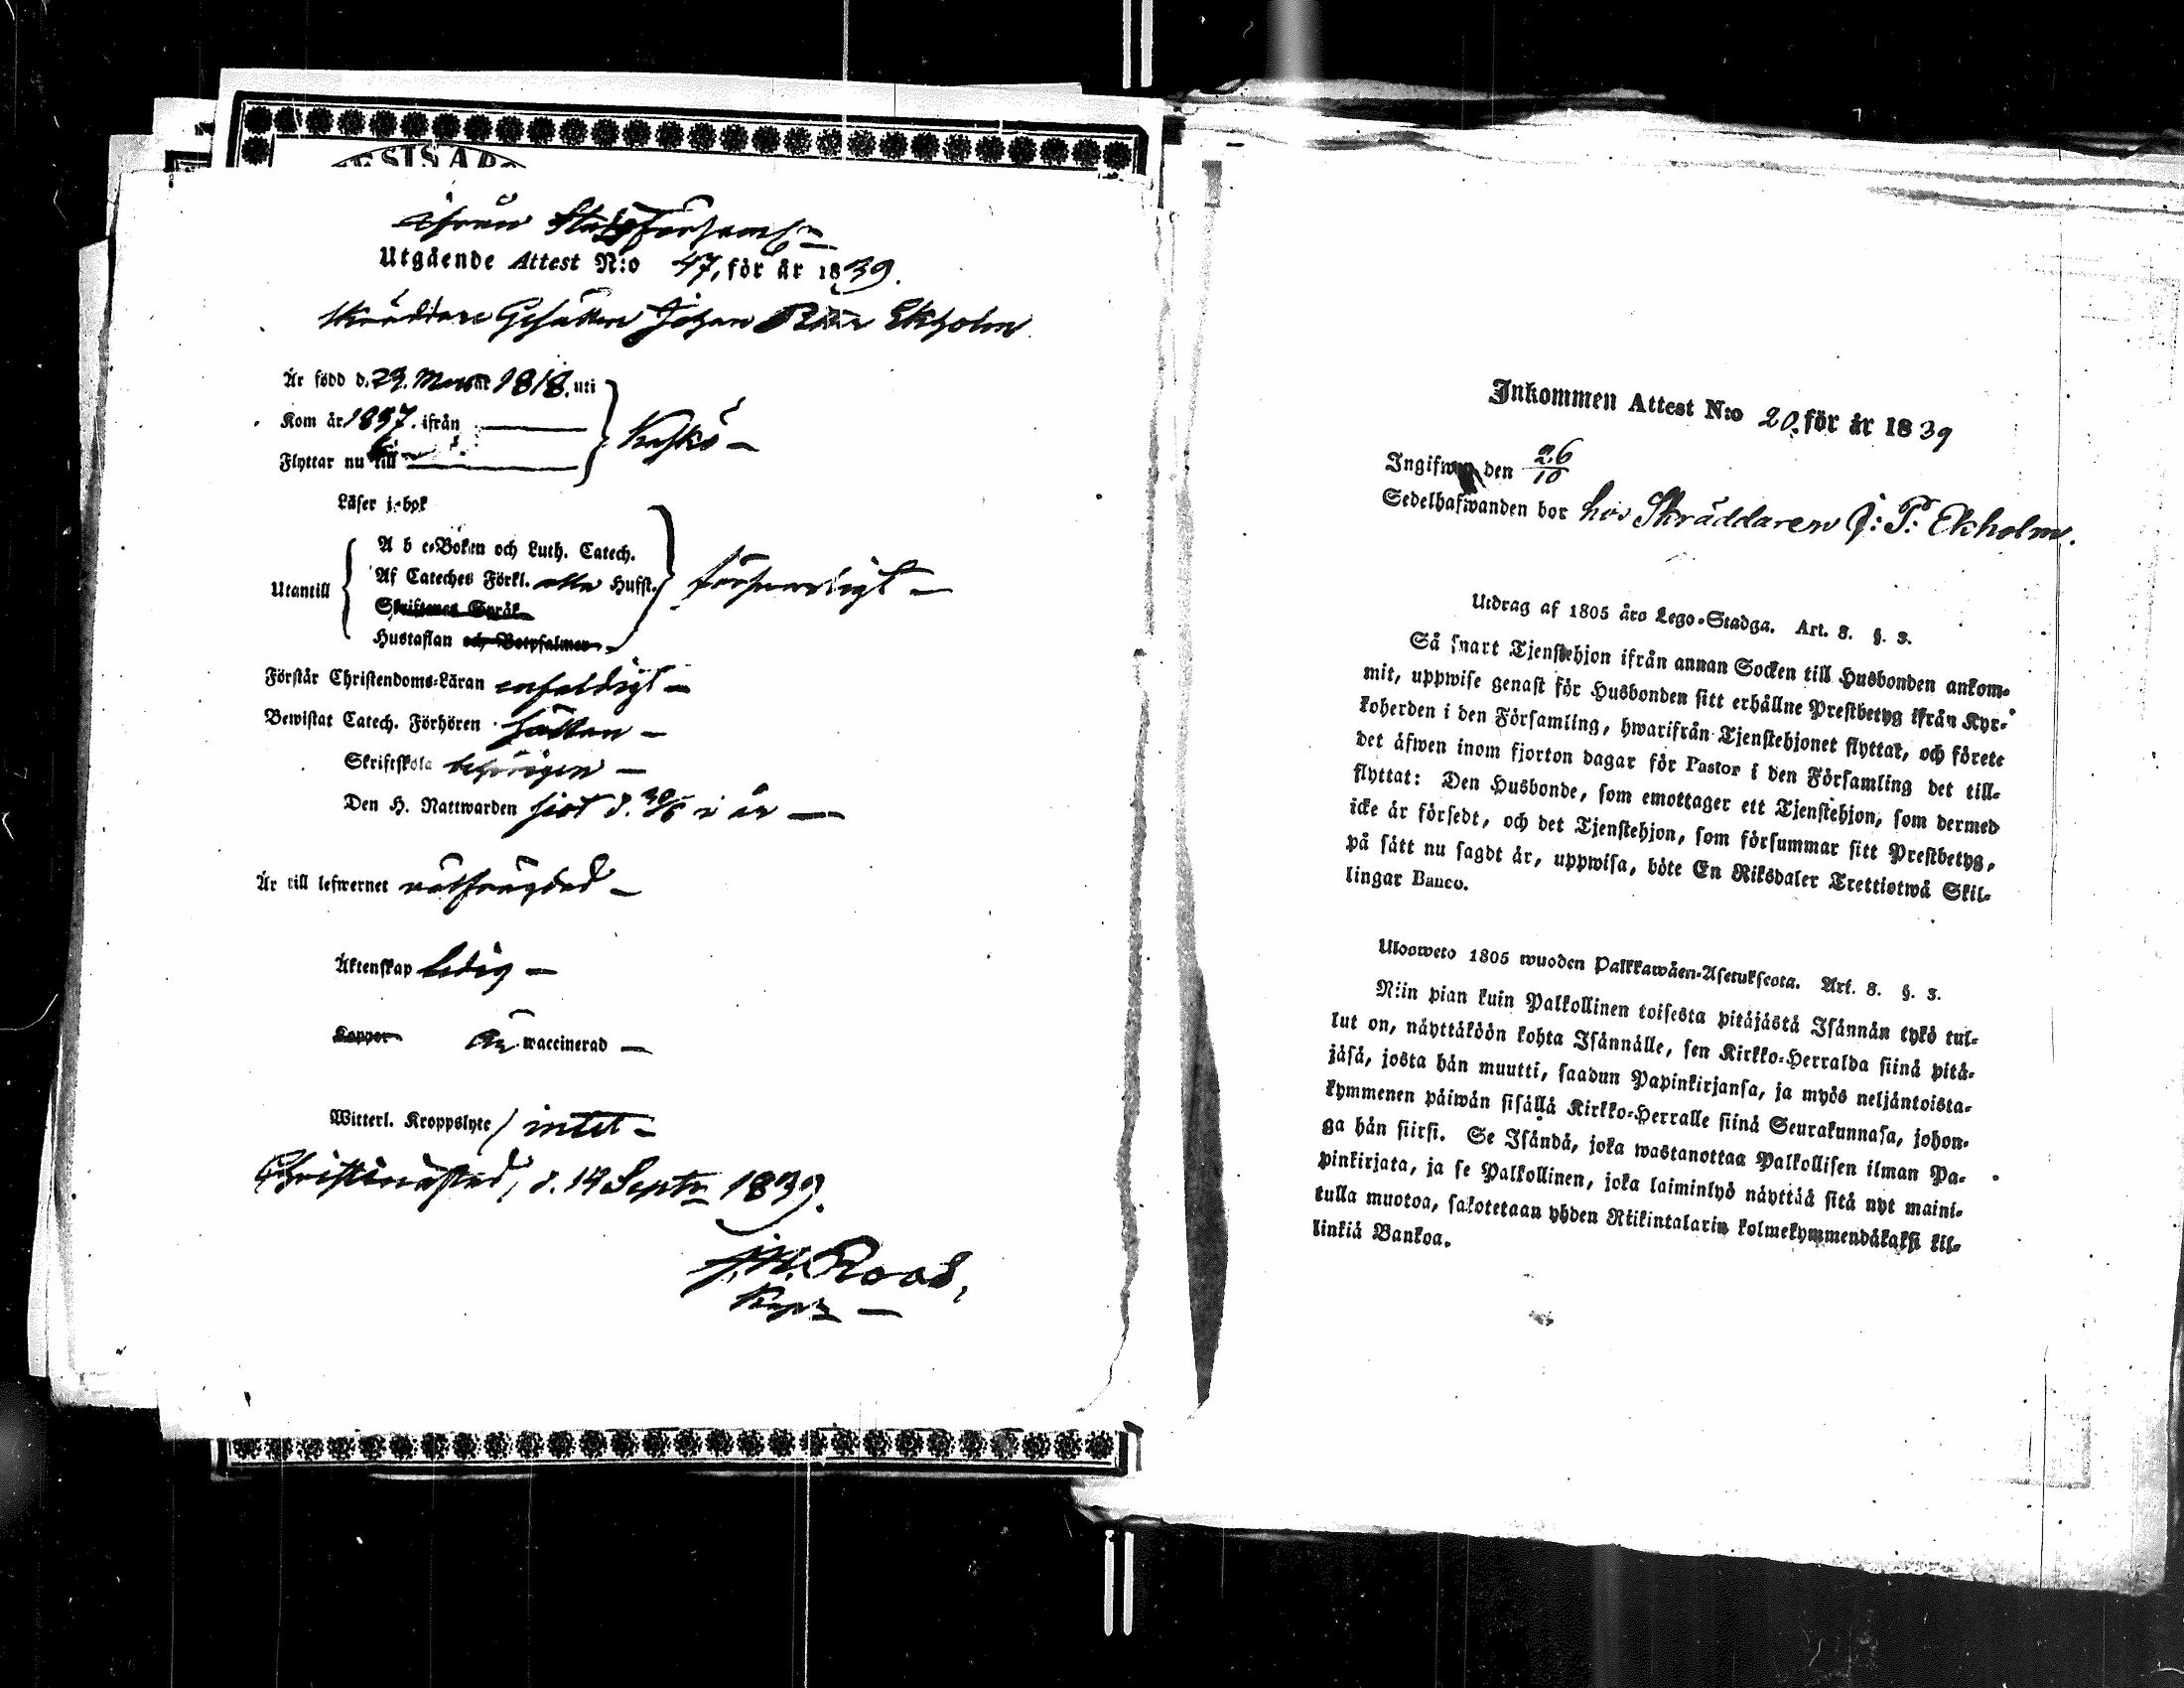 ifrån Stadsförsaml:n
Utgående Attest N:o 47, för år 1839.
Skräddare Gesällen Johan Ekholm
Är född d. 29. 1818. uti
Kom år 1837. ifrån
Flyttar nu till
Kaskö
Läser i bok
A b c-Boken och Luth. Catech.
Af Cateches Förkl. alla Hufst.
Utantill
försvarligt
Skriftenes Språk
Hustaflan och Botpsalmer
Förstår Christendoms-Läran enfaldigt
Bewistat Catech. Förhören sällan
Skriftskola behörigen
Den H. Nattwarden sist d. 30/6 i år
Är till lefwernet välfrägdad
Äktenskap ledig
Koppor Är waccinerad
Witterl. Kroppslyte intet
Christinæstad, d. 14 Septr 1839.
J. M. Roos,
Inkommen Attest N:o 20. för år 1839
Ingifwen den 26/10
Sedelhafwanden bor hos Skräddaren J: P: Ekholm.
Utdrag af 1805 års Lego-Stadga. Art. 8. §. 3.
Så snart Tjenstehjon ifrån annan Socken till Husbonden ankom-
mit, uppwise genast för Husbonden sitt erhållne Prestbetyg ifrån Kyr-
koherden i den Församling, hwarifrån Tjenstehjonet flyttat, och förete
det äfwen inom fjorton dagar för Pastor i den Församling det till-
flyttat: Den Husbonde, som emottager ett Tjenstehjon, som dermed
icke är försedt, och det Tjenstehjon, som försummar sitt Prestbetyg,
på sätt nu sagdt är, uppwisa, böte En Riksdaler Trettiotwå Skil-
lingar Banco.
Ulosweto 1805 wuoden Palkkawäen-Asetuksesta. Art. 8. §. 3.
Niin pian kuin Palkollinen toisesta pitäjästä Isännän tykö tul-
lut on, näyttäköön kohta Isännälle, sen Kirkko-Herralda siinä pitä-
jäsä, josta hän muutti, saadun Papinkirjansa, ja myös neljäntoista-
kymmenen päiwän sisällä Kirkko-Herralle siinä Seurakunnasa, johon-
ga hän siirsi. Se Isändä, joka wastanottaa Palkollisen ilman Pa-
pinkirjata, ja se Palkollinen, joka laiminlyö näyttää sitä nyt maini-
tulla muotoa, sakotetaan yhden Riikintalarin kolmekymmendäkaksi kil-
linkiä Bankoa.